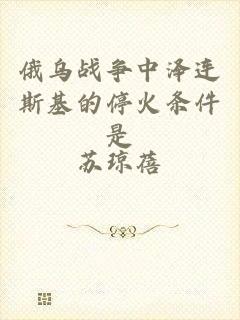 俄乌战争中泽连
斯基的停火条件
是
苏琼蓓